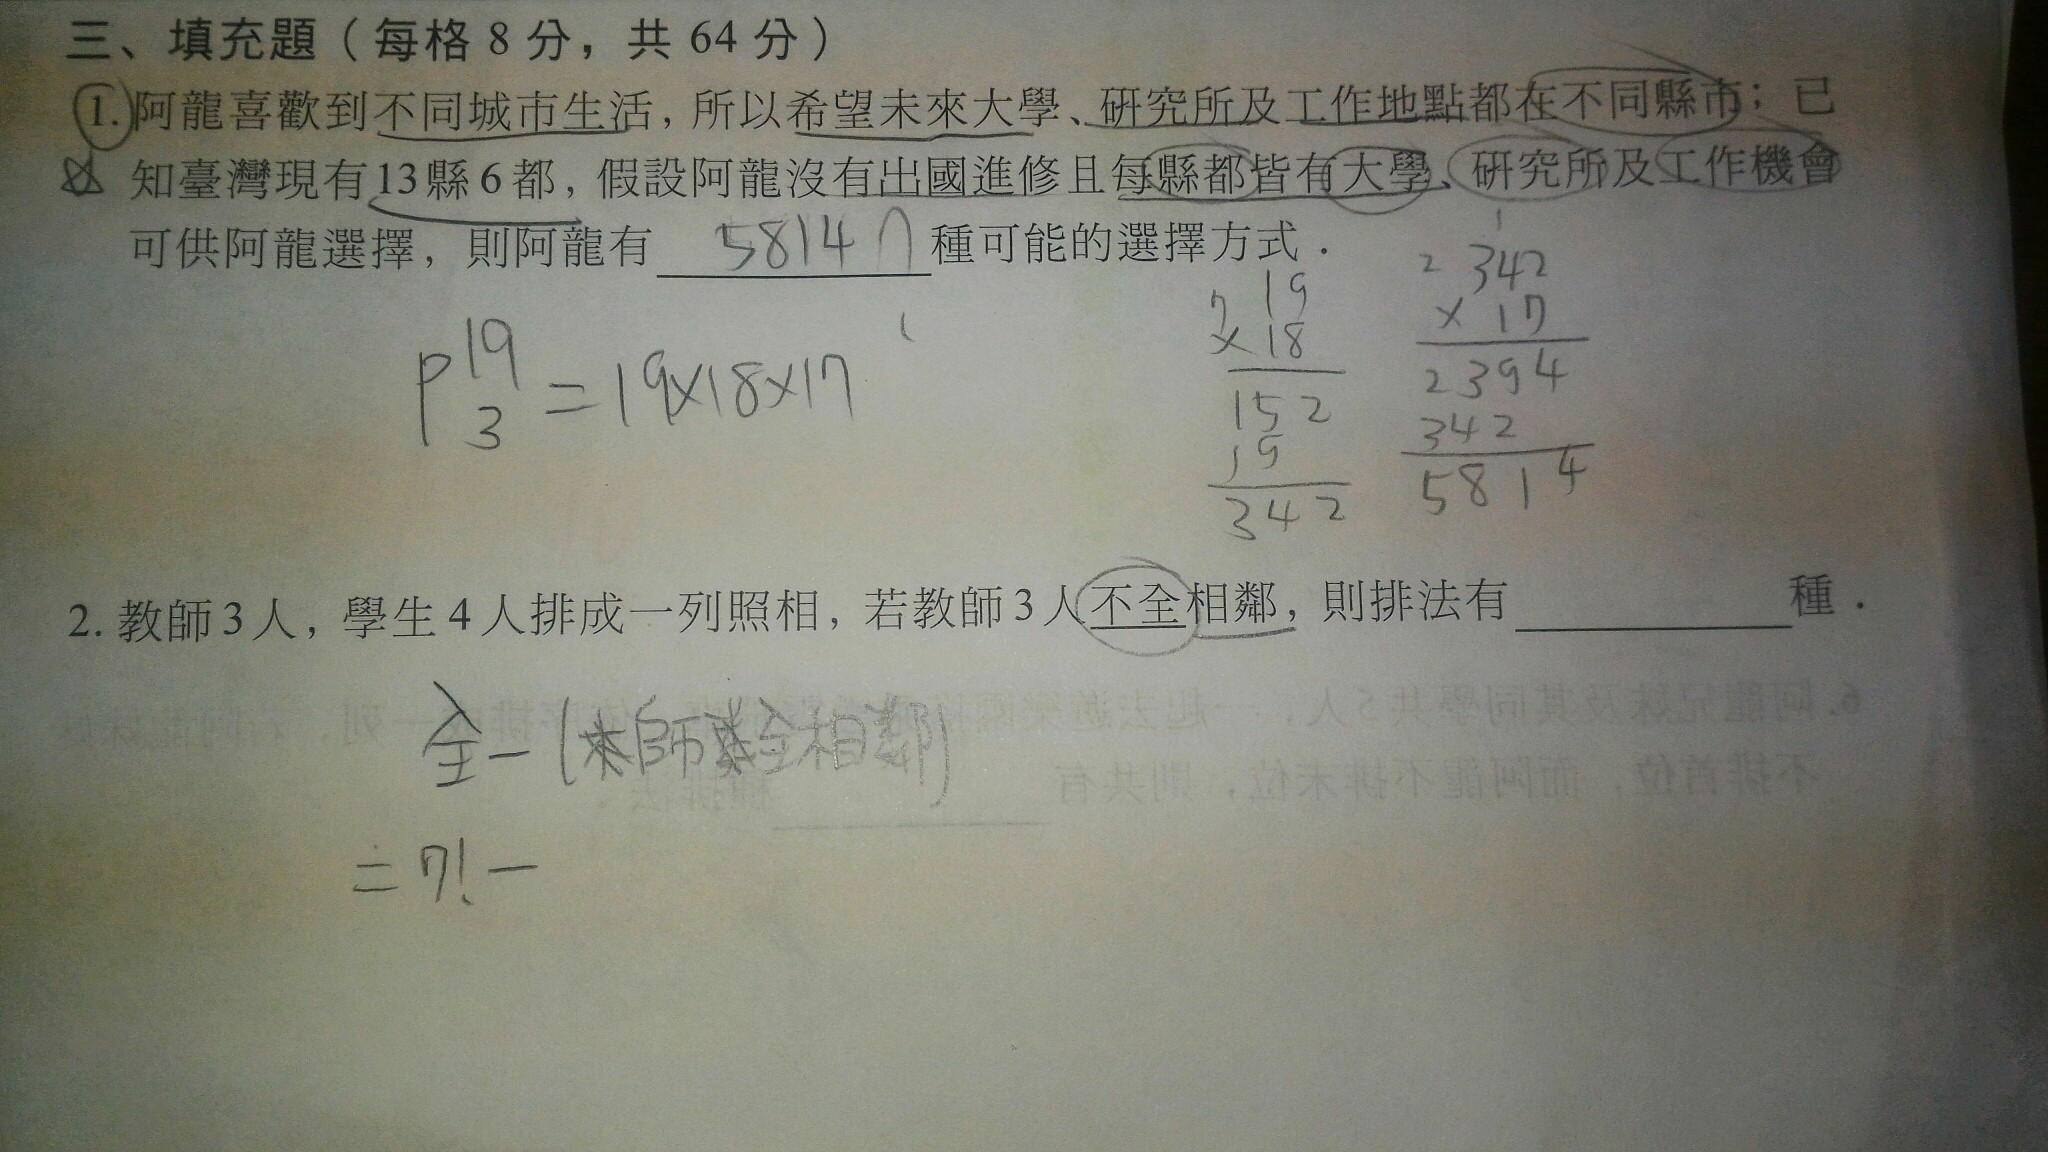 三、填充題（每格 8 分，共 64 分）
1. 阿龍喜歡到不同城市生活，所以希望未來大學、研究所及工作地點都在不同縣市；已
知臺灣現有 13 縣 6 都，假設阿龍沒有出國進修且每縣都皆有大學、研究所及工作機會
可供阿龍選擇，則阿龍有 5814 種可能的選擇方式．
P 19 3 = 19×18×17
7 19
×18
152
19
342
1
2 342
× 17
2394
342
5814
2. 教師 3 人，學生 4 人排成一列照相，若教師 3 人不全相鄰，則排法有 種．
全－(師全相鄰)
= 7! －
6. 阿龍兄妹及其同學共 5 人，一起去遊樂園 排成一列，
不排首位，而阿龍不排末位，則共有 種排法．